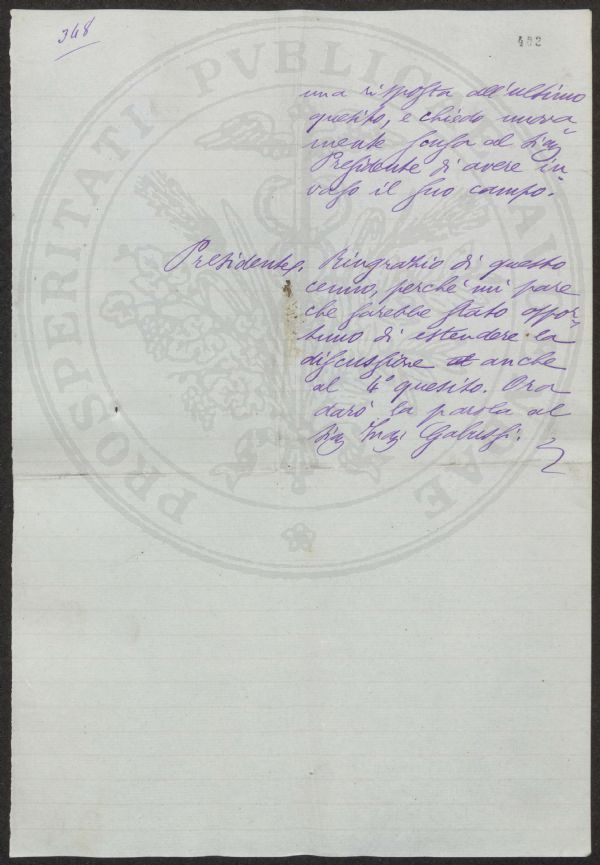 348
482
una risposta all'ultimo
quesito, e chiedo nuova-
mente scusa al Sig.
Presidente di avere in-
vaso il suo campo.
Presidente. Ringrazio di questo
cenno, perché mi pare
che sarebbe stato oppor-
tuno di estendere la
discussione anche
al 4° quesito. Ora
darò la parola al
Sig. Ing. Gabussi.
PROSPERITATI PVBLICAE